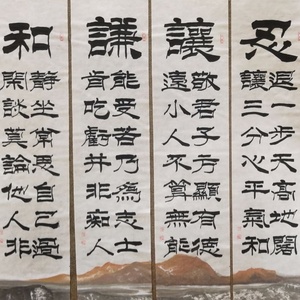 忍
退一步天高地闊
讓三分心平氣和
讓
敬君子方顯有德
遠小人不算無能
謙
能受苦乃為志士
肯吃虧并非痴人
和
靜坐常思自己過
閑談莫論他人非